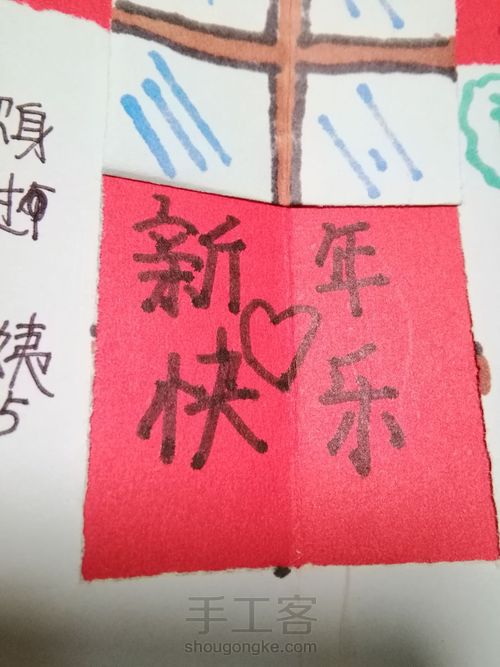 新年
快乐
身
姨
5
手工客
shougongke.com